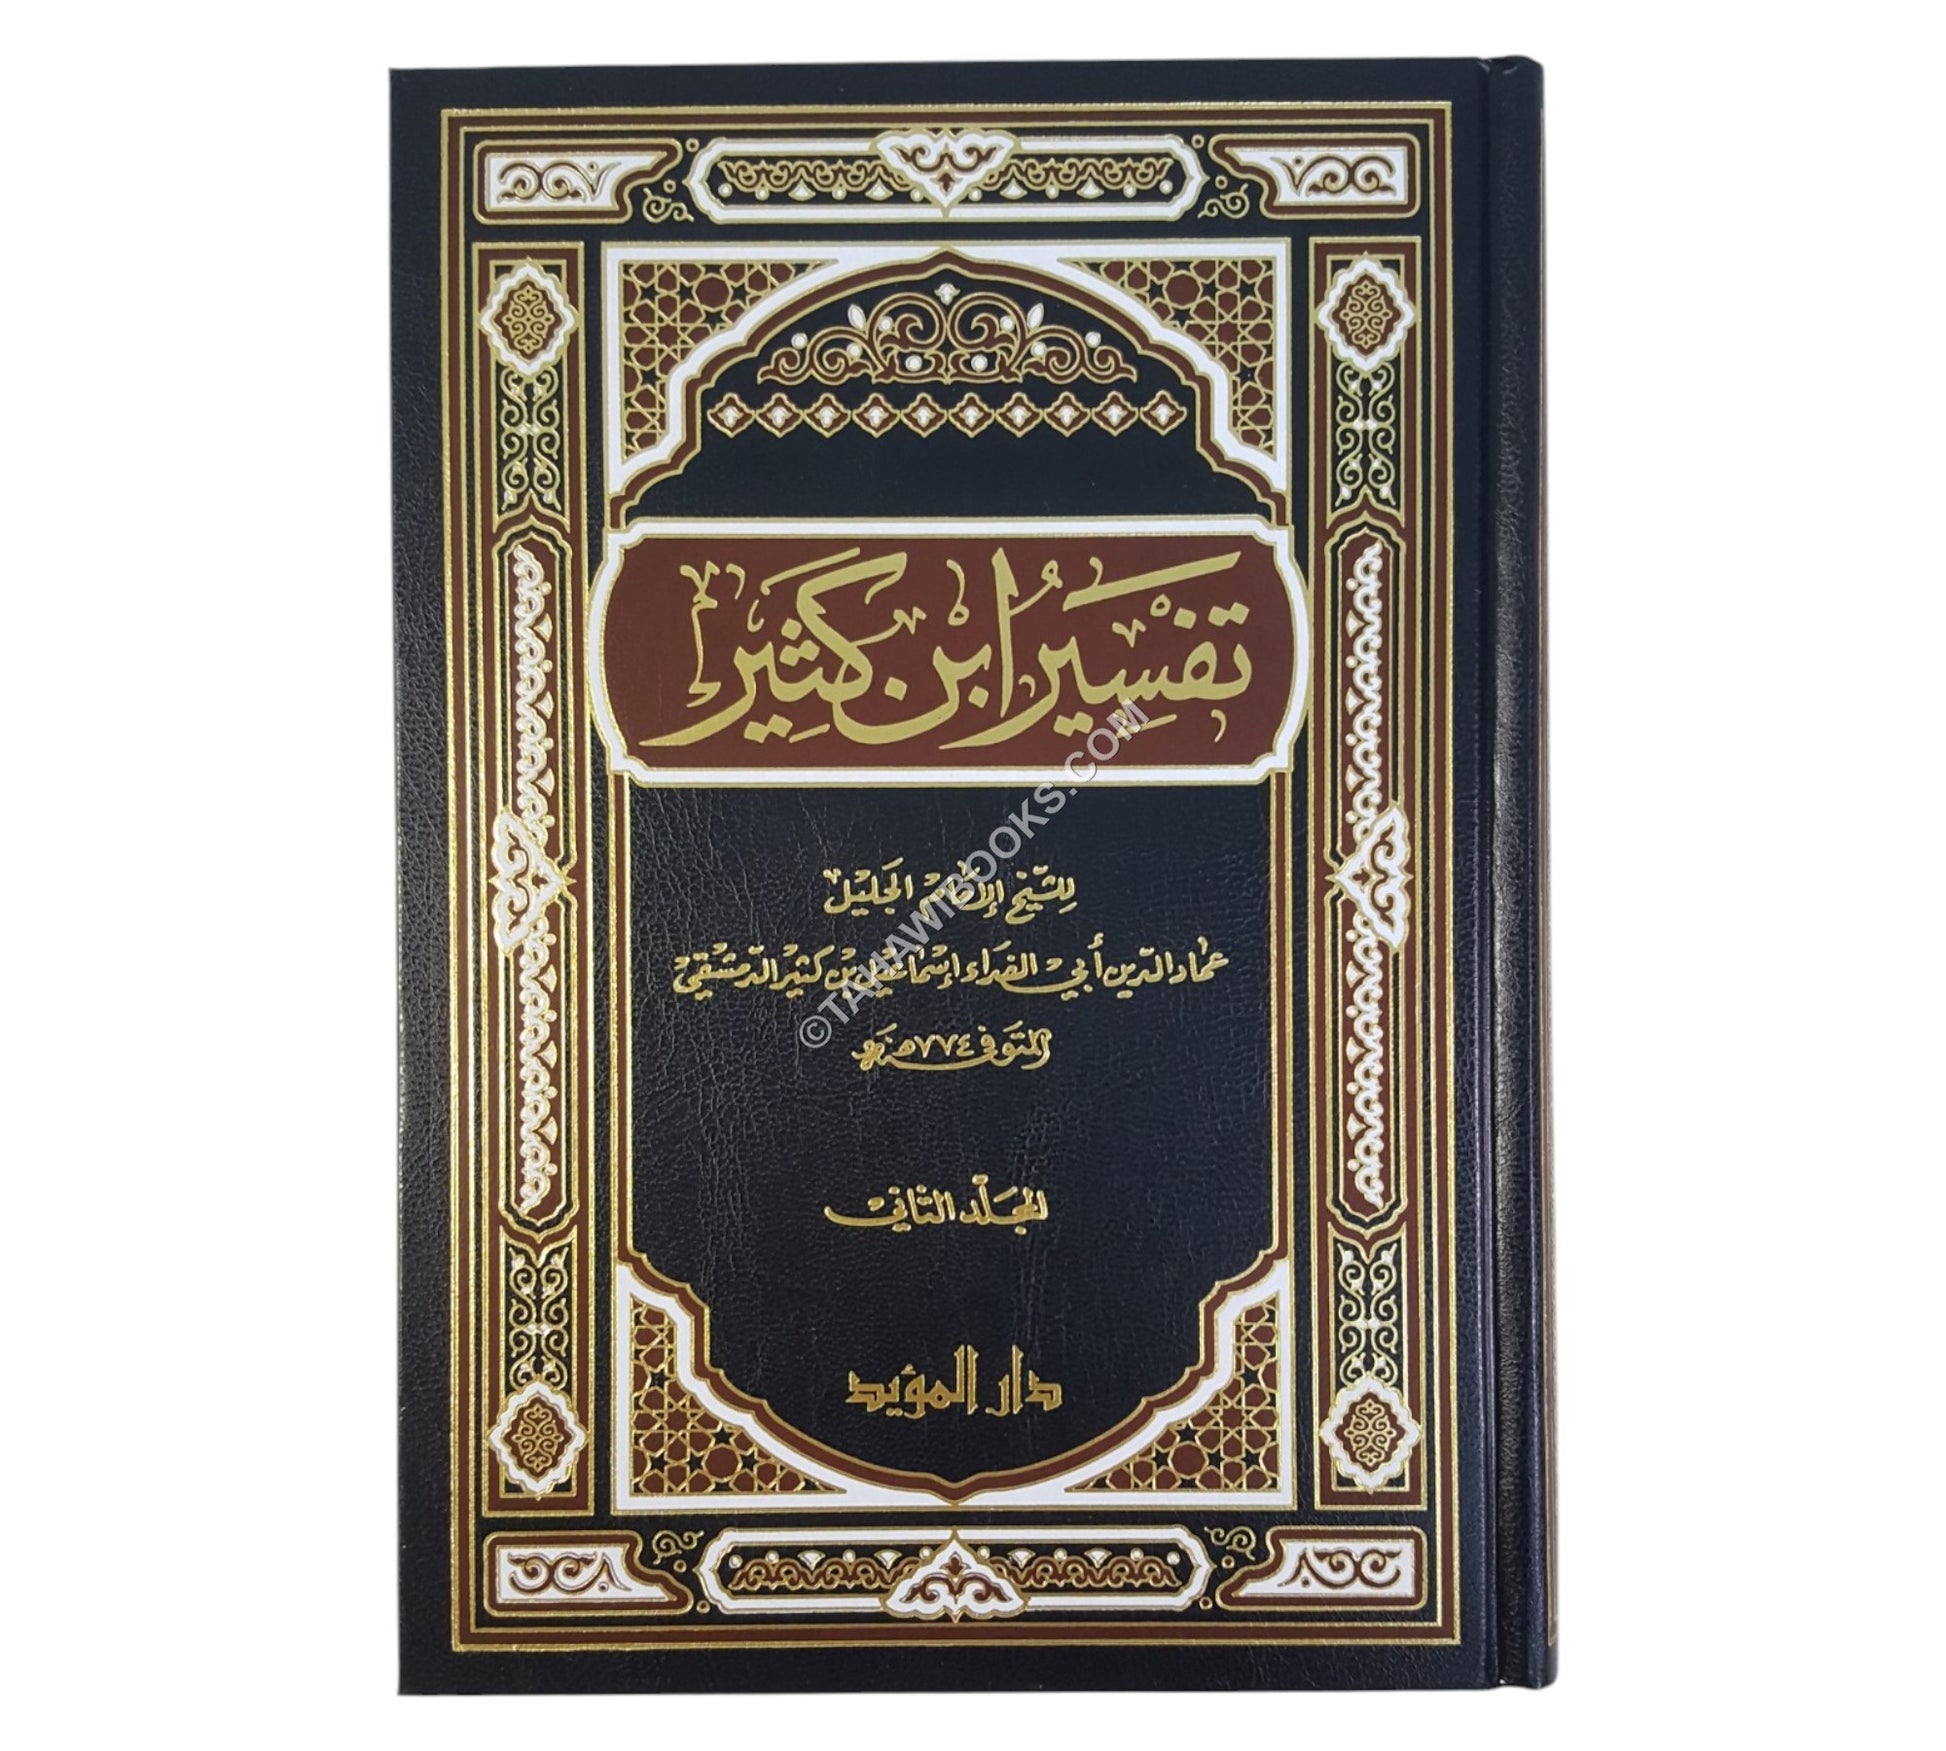 تفسير ابن كثير
للشيخ الإمام الجليل
عماد الدين أبي الفداء إسماعيل بن كثير الدمشقي
المتوفى ٧٧٤ هـ
المجلد الثاني
دار المؤيد
©TAHAWIBOOKS.COM